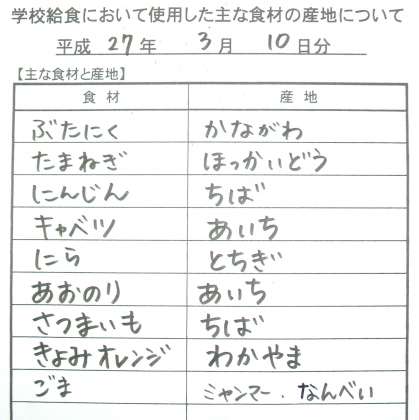 学校給食において使用した主な食材の産地について
平成 27年 3月 10日分
【主な食材と産地】
食材 産地
ぶたにく かながわ
たまねぎ ほっかいどう
にんじん ちば
キャベツ あいち
にら とちぎ
あおのり あいち
さつまいも ちば
きよみオレンジ わかやま
ごま ミャンマー．なんべい